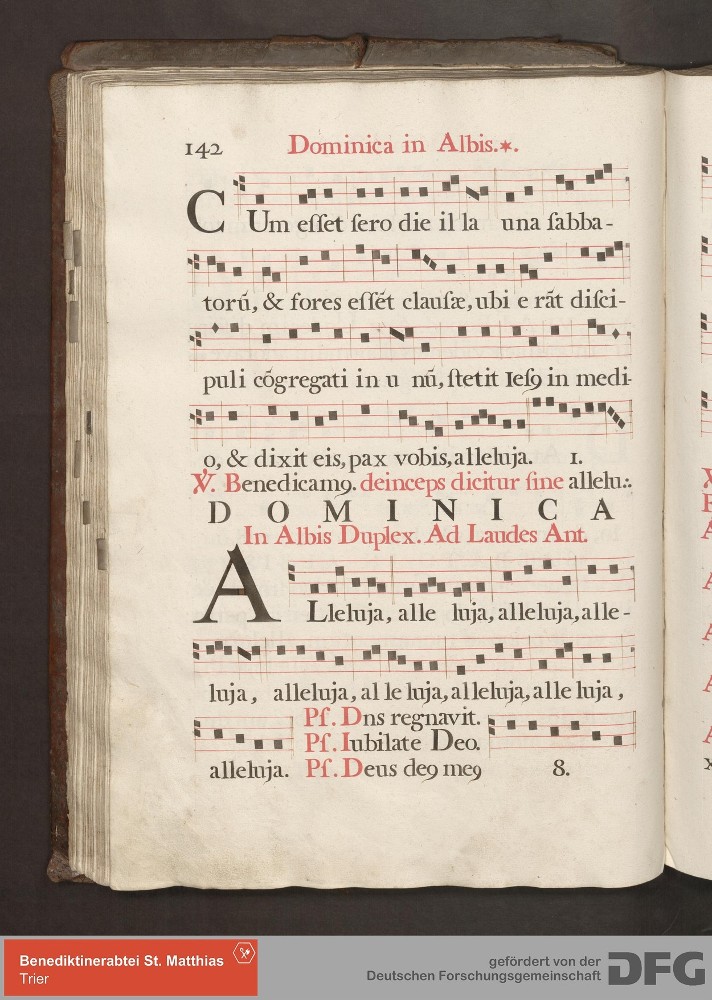 142 Dominica in Albis.*.
CUm eſſet ſero die il la una ſabba-
torū, & fores eſſēt clauſæ, ubi e rāt diſci-
puli cōgregati in u nū, ſtetit Ieſꝯ in medi-
o, & dixit eis, pax vobis, alleluja. 1.
℣. Benedicamꝯ. deinceps dicitur ſine allelu:.
DOMINICA
In Albis Duplex. Ad Laudes Ant.
ALleluja, alle luja, alleluja, alle-
luja, alleluja, al le luja, alleluja, alle luja,
Pſ. Dns regnavit.
Pſ. Iubilate Deo.
alleluja. Pſ. Deus deꝯ meꝯ 8.
Benediktinerabtei St. Matthias
Trier
gefördert von der
Deutschen Forschungsgemeinschaft
DFG